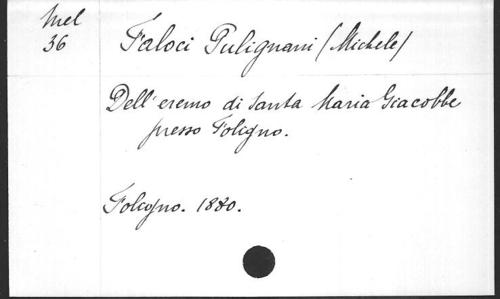 Mel
36
Faloci Pulignani /Michele/
Dell'eremo di Santa Maria Giacobbe
presso Foligno.
Foligno. 1880.